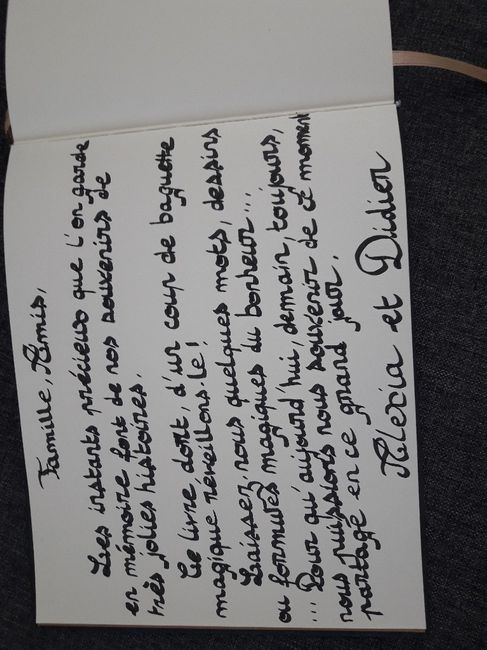 Famille, Amis,
Les instants précieux que l'on garde
en mémoire font de nos souvenirs de
très jolies histoires.
Ce livre dort, d'un coup de baguette
magique réveillons-le !
Laissez, nous quelques mots, dessins
ou formules magiques du bonheur...
... Pour qu'aujourd'hui, demain, toujours,
nous puissions nous souvenir de ce moment
partagé en ce grand jour.
Alexia et Didier